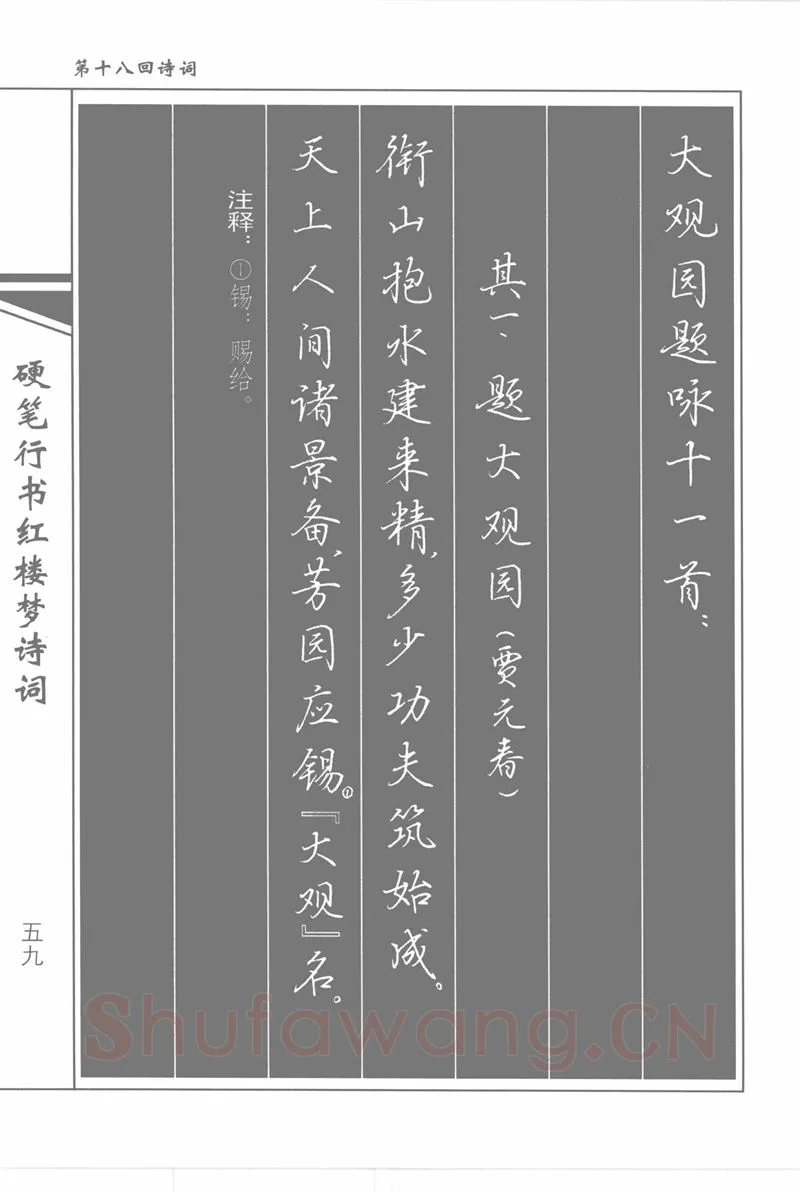 第十八回诗词
大观园题咏十一首：
其一、题大观园（贾元春）
衔山抱水建来精，多少功夫筑始成。
天上人间诸景备，芳园应锡①『大观』名。
注释：①锡：赐给。
硬笔行书红楼梦诗词
五九
Shufawang.CN